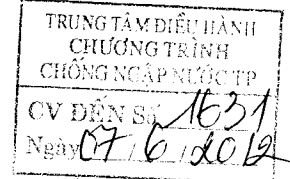 TRUNG TÂM ĐIỀU HÀNH
CHƯƠNG TRÌNH
CHỐNG NGẬP NƯỚC TP
CV ĐẾN Số 1631
Ngày 07 / 6 / 2012